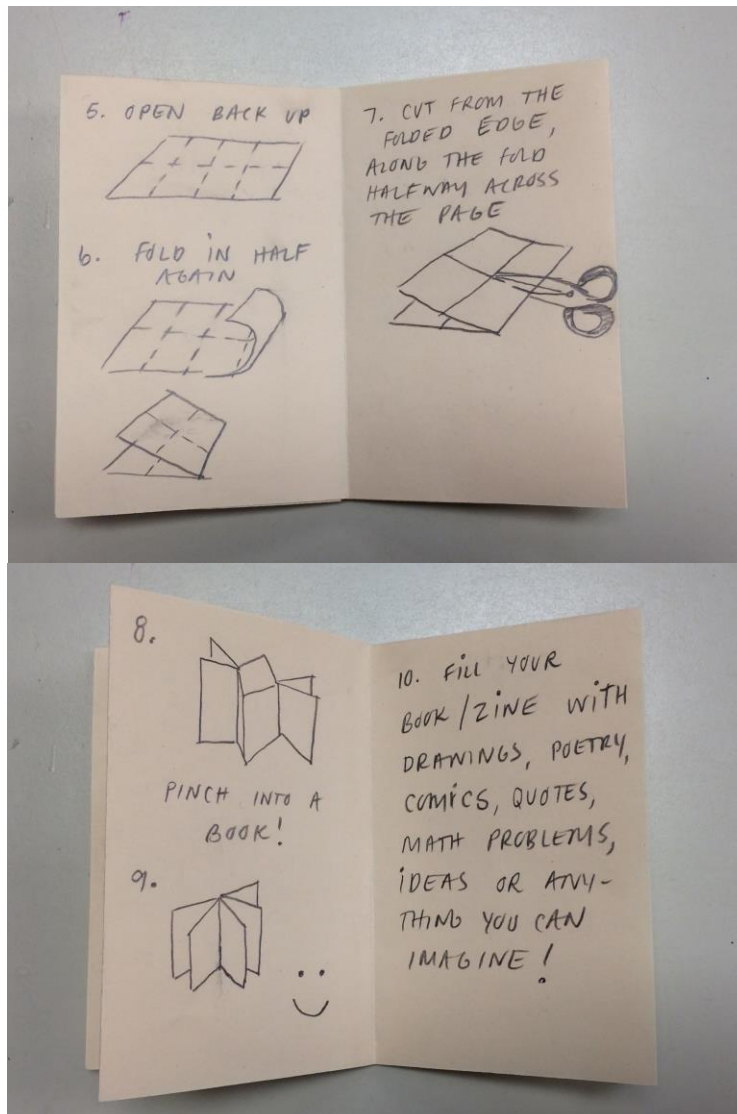 5. OPEN BACK UP
6. FOLD IN HALF
AGAIN
7. CUT FROM THE
FOLDED EDGE,
ALONG THE FOLD
HALFWAY ACROSS
THE PAGE
8.
PINCH INTO A
BOOK!
9.
10. FILL YOUR
BOOK/ZINE WITH
DRAWINGS, POETRY,
COMICS, QUOTES,
MATH PROBLEMS,
IDEAS OR ANY-
THING YOU CAN
IMAGINE!